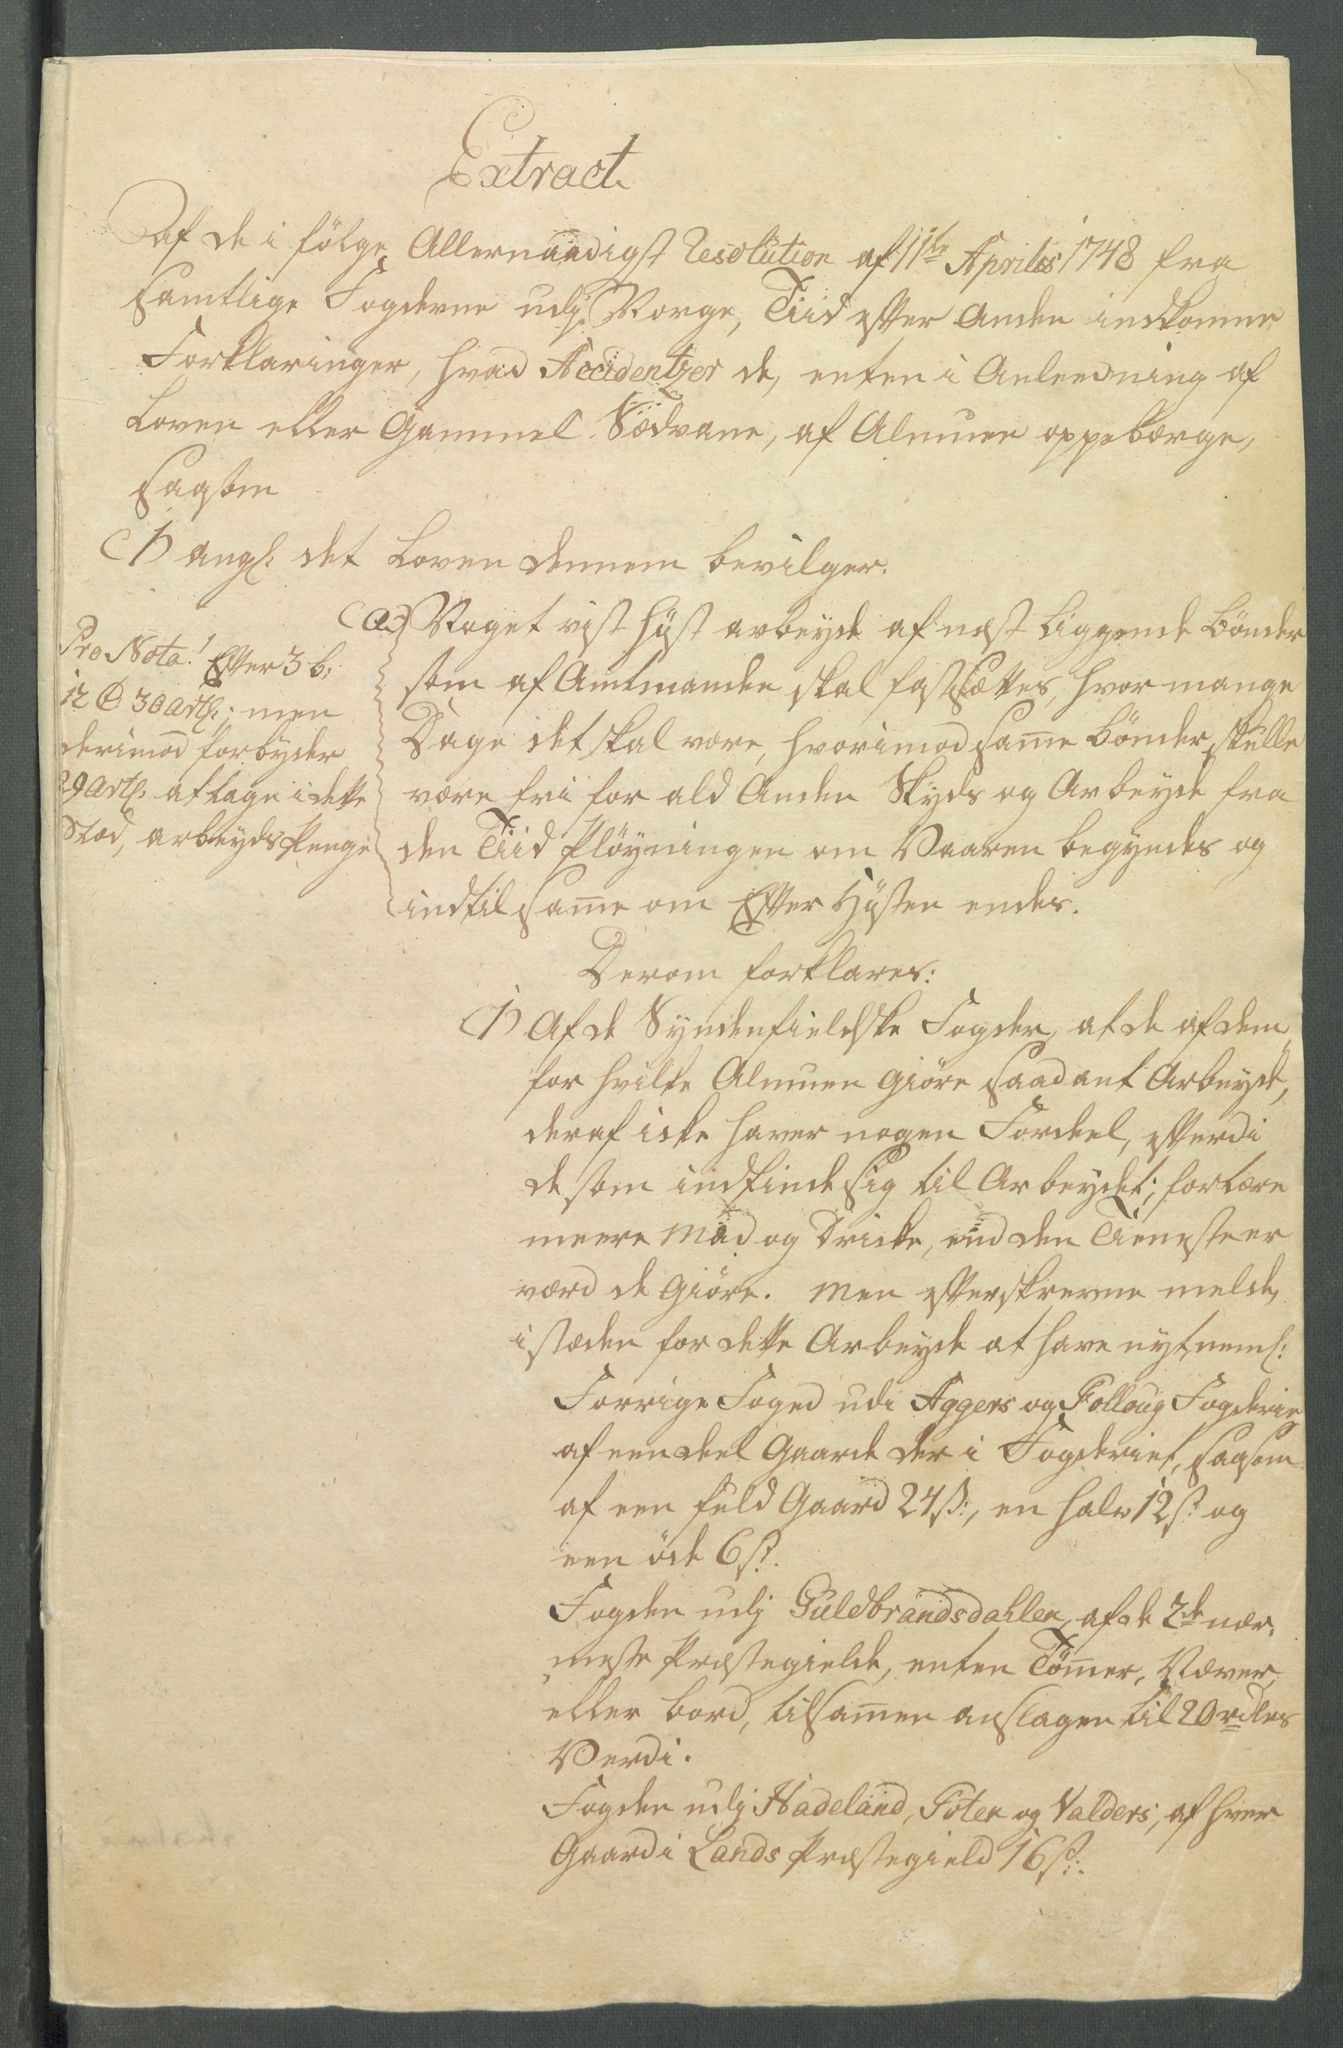 Extract
af de i fölge Allernaadigst Resolution af 11te Aprilis 1748 fra
samtlige Fogderne udj Norge, Tiid efter Anden indkomne
Forklaringer, hvad Accidentzer de, enten i Anleedning af
Loven eller Gammel Sædvane, af Almuen oppebærge,
saasom
1) angl: det Loven dennem bevilger.
Pro Nota! Efter 3 b:
12 C 30 artl:; men
derimod forbyder
29 artl: at tage i dette
Stæd, arbeyds Penge
a) Noget vist Høst arbeyde af næst liggende Bönder
som af Amtmanden skal fastsættes, hvor mange
Dage det skal være, hvorimod samme Bönder skulle
være fri for ald Anden Skyds og Arbeyde fra
den Tiid Plöyningen om Vaaren begyndes og
indtil samme om Efter Høsten endes.
Derom forklares:
1) Af de Syndenfieldske Fogder, at de af dem
for hvilke Almuen giöre saadant Arbeyde,
deraf icke haver nogen Fordeel, efterdi
de som indfinde sig til Arbeydet, fortære
meere Mad og Dricke, end den Tieneste er
værd de giöre. Men efterskrevne melde,
i stæden for dette Arbeyde at have nyt, neml:
Forrige Foged udi Aggers og Folloug Fogderie
af een deel Gaarde der i Fogderiet, saasom
af een fuld Gaard 24 ß:, en halv 12 ß: og
een öde 6 ß:
Fogden udj Guldbrandsdahlen, af de 2de nær-
meste Præstegielde, enten Tömmer, Næver,
eller bord, tilsammen anslagen til 20 rdlrs
Verdi.
Fogden udj Hadeland, Toten og Valders, af hver
Gaard i Lands Præstegield 16 ß: